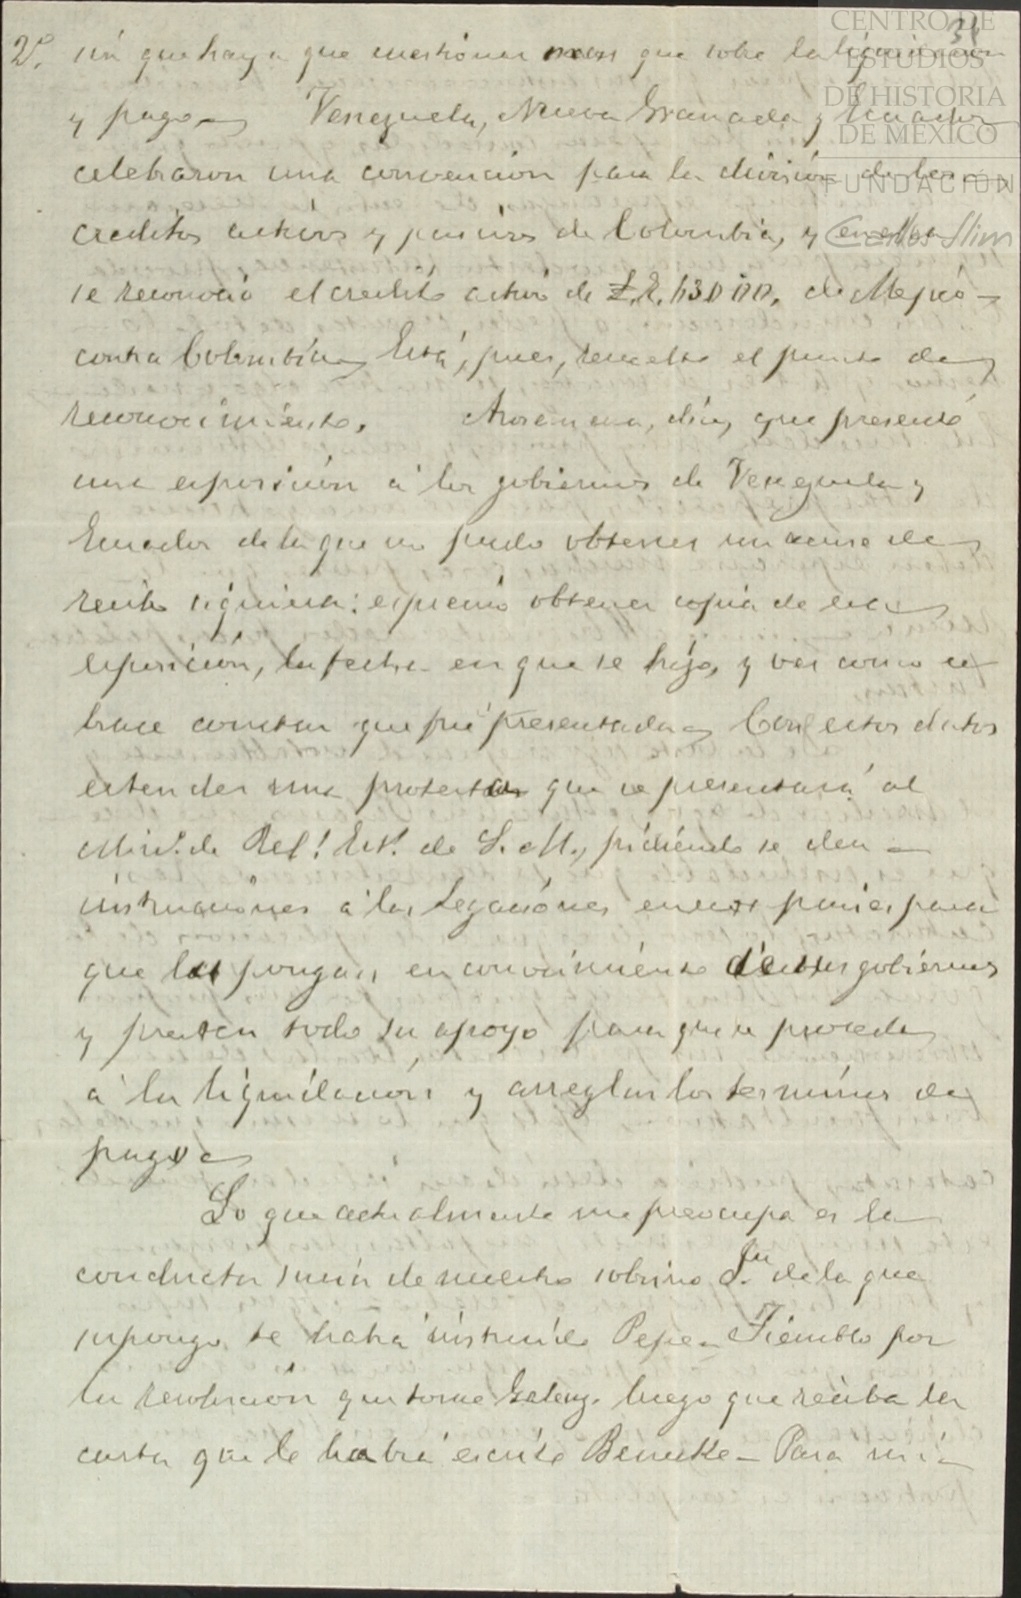 CENTRO DE
ESTUDIOS
DE HISTORIA
DE MÉXICO
FUNDACIÓN
Carlos Slim
2º. sin que haya que cuestionar mas que sobre la liquidacion
y pago— Venezuela, Nueva Granada y Ecuador
celebraron una convencion para la división de los
creditos activos y pasivos de Colombia, y en ella
se reconoció el credito activo de de Mejico—
contra Colombia— Está, pues, resuelto el punto de
reconocimiento. dice, que presentó
una exposición á los gobiernos de Venezuela y
Ecuador de la que no pudo obtener un acuse de
recibo siquiera: es preciso obtener copia de esa
exposición, la fecha en que se hizo, y ver como se
hace constar que fué presentada— Con estos datos
estender una protesta que se presentará al
Minº. de Relˢ. Extˢ. de S. M., pidiendo se den—
instrucciones á las Legaciones en esos paises para
que las pongan en conocimiento de sus gobiernos
y presten todo su apoyo para que se proceda
á la liquidación y arreglar los terminos de
pago—
Lo que actualmente me preocupa es la
conducta de nuestro sobrino de la que
supongo te habrá instruido Pepe— Tiemblo por
la resolución que tome luego que reciba la
carta que le habrá escrito Benecke— Para mi—